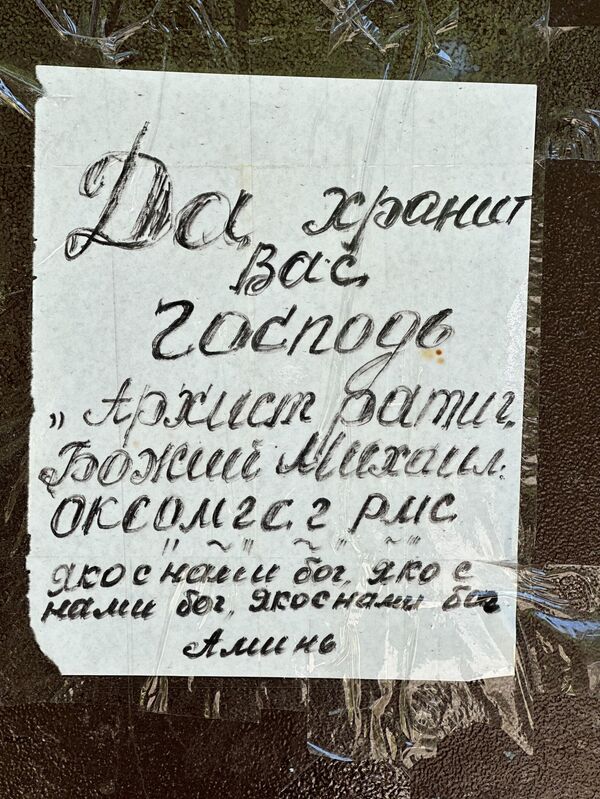 Да хранит
Вас
Господь
„ Архист ратиг.
Божий Михаил.
оксомгс. г рмс
" ~" ~" ~"
яко с нами бог, яко с
нами бог, яко с нами бог
Аминь